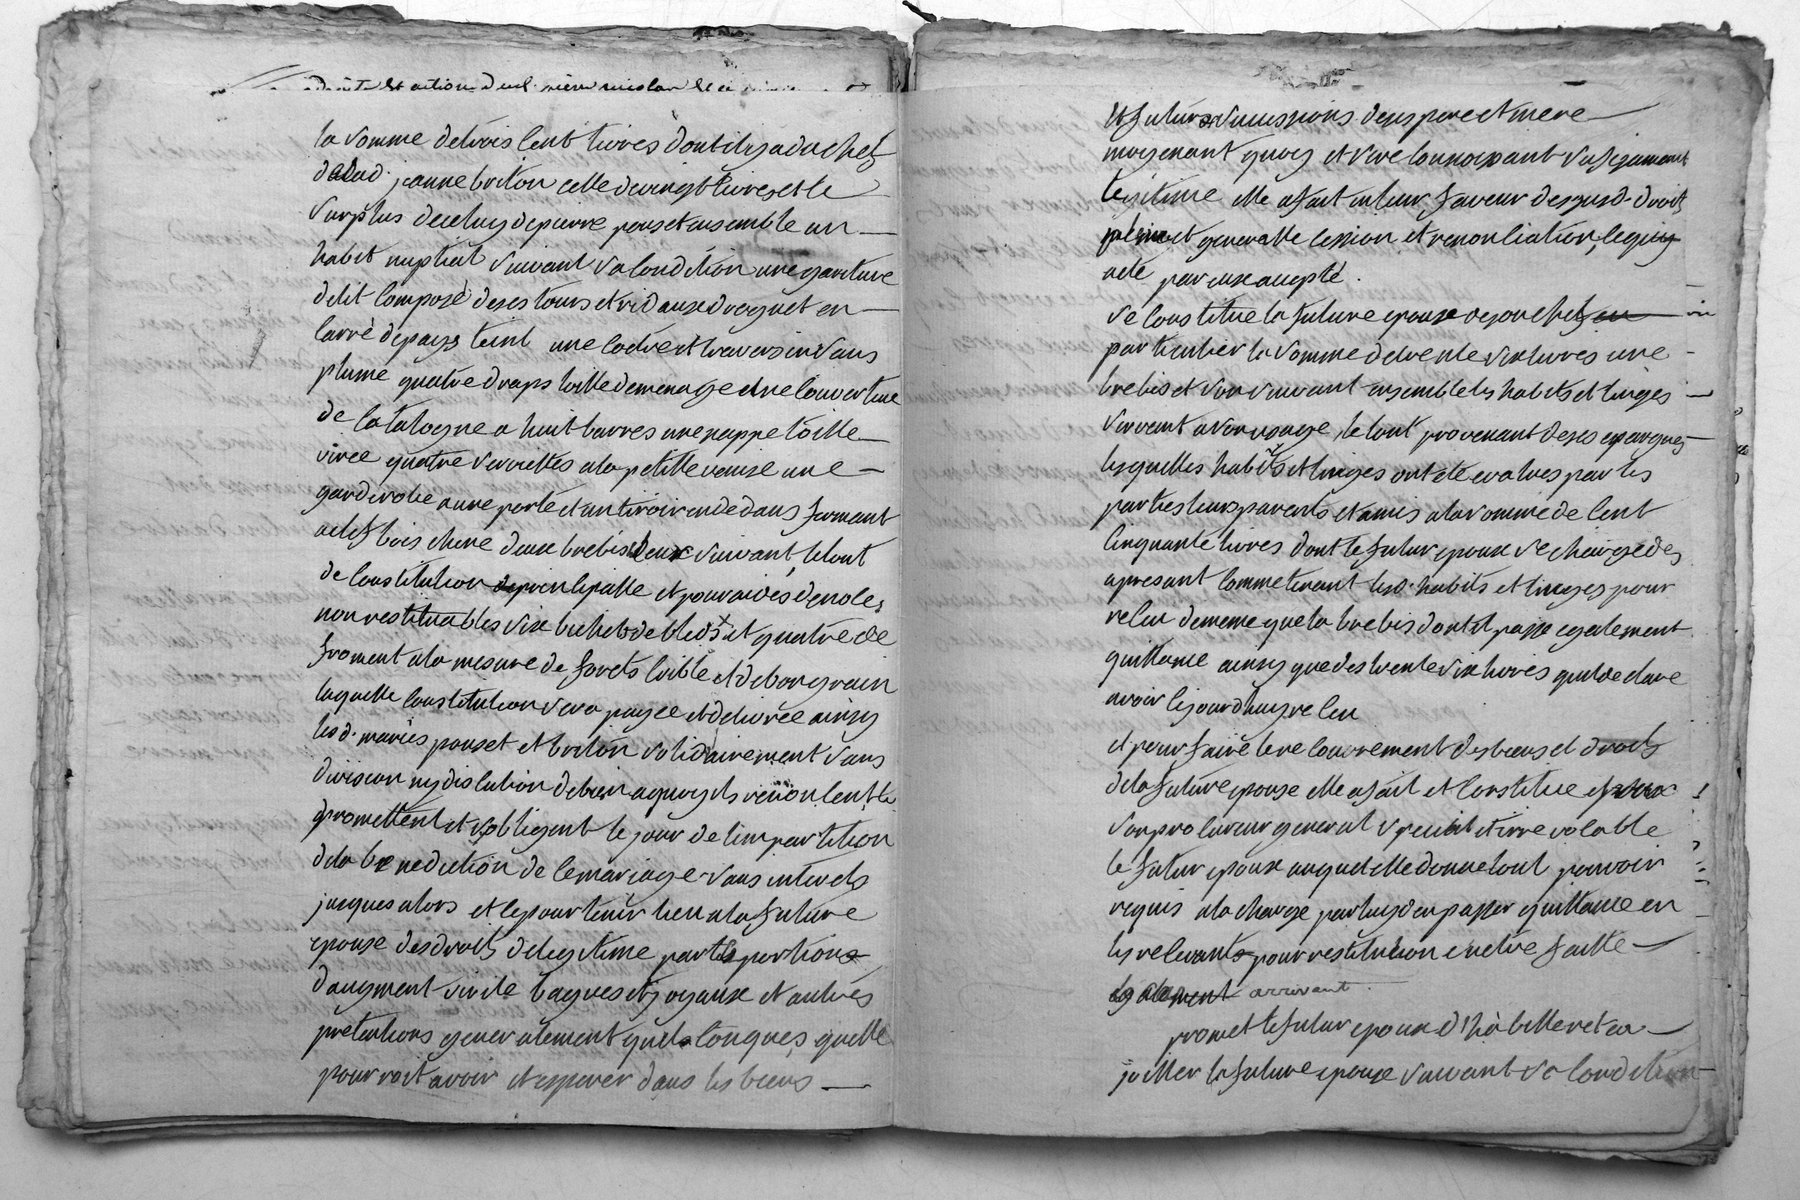 la somme de trois cent livres dont il y a du chef
de lad. jeanne briton celle de vingt livres et le
surplus de celuy de pierre pouset ensemble un
habit nuptial suivant sa condition une garniture
de lit composé de ses tours et rideaux droguet en
carré de pays teint une coetre et traversin sans
plume quatre draps toille de menage et une couverture
de catalogne a huit barres une nappe toille
virée quatre serviettes a la petitte venise une
garderobe a une porte et un tiroir en dedans fermant
a clef bois chene deux brebis leur suivant, le tout
de constitution principalle et pour aides de noces
non restituables six bichets de bled st et quatre de
froment a la mesure de forets cuible et de bon grain
laquelle constitution sera payée et delivrée ainsy
lesd. mariés pouset et briton solidairement sans
division ny discution de bien a quoy ils renoncent le
promettent et s'obligent le jour de l'impartition
de la benediction de ce mariage sans interets
jusques alors et ce pour tenir lieu a la future
epouse des droits de legitime part et portions
d'augment virile bagues et joyaux et autres
pretentions generalement quelconques qu'elle
pourroit avoir et esperer dans les biens
et futures successions de ses pere et mere
moyenant quoy et s'en connoissant suffisament
legitimé elle a fait en leur faveur de ses susd. droits
pleine et generalle cession et renonciation, ce qui
a eté par eux accepté.
se constitue la future epouse de son chef
particulier la somme de trente six livres une
brebis et son suivant ensemble les habits et linges
servant a son usage, le tout provenant de ses epargnes
lesquelles habits et linges ont eté evalués par les
parties leurs parents et amis a la somme de cent
cinquante livres dont le futur epoux se charge dés
apresant comme tenant lesd. habits et linges pour
recu de meme que la brebis dont il passe egalement
quittance ainsy que des trente six livres qu'il declare
avoir ce jourd'huy recu
et pour faire le recouvrement des biens et droits
de la future epouse elle a fait et constitue
son procureur general special et irrevocable
le futur epoux auquel elle donne tout pouvoir
requis a la charge par luy d'en passer quittance en
les relevants pour restitution en etre faitte
egalement arrivant.
promet le futur epoux d'habiller et en
joailler la future epouse suivant sa condition